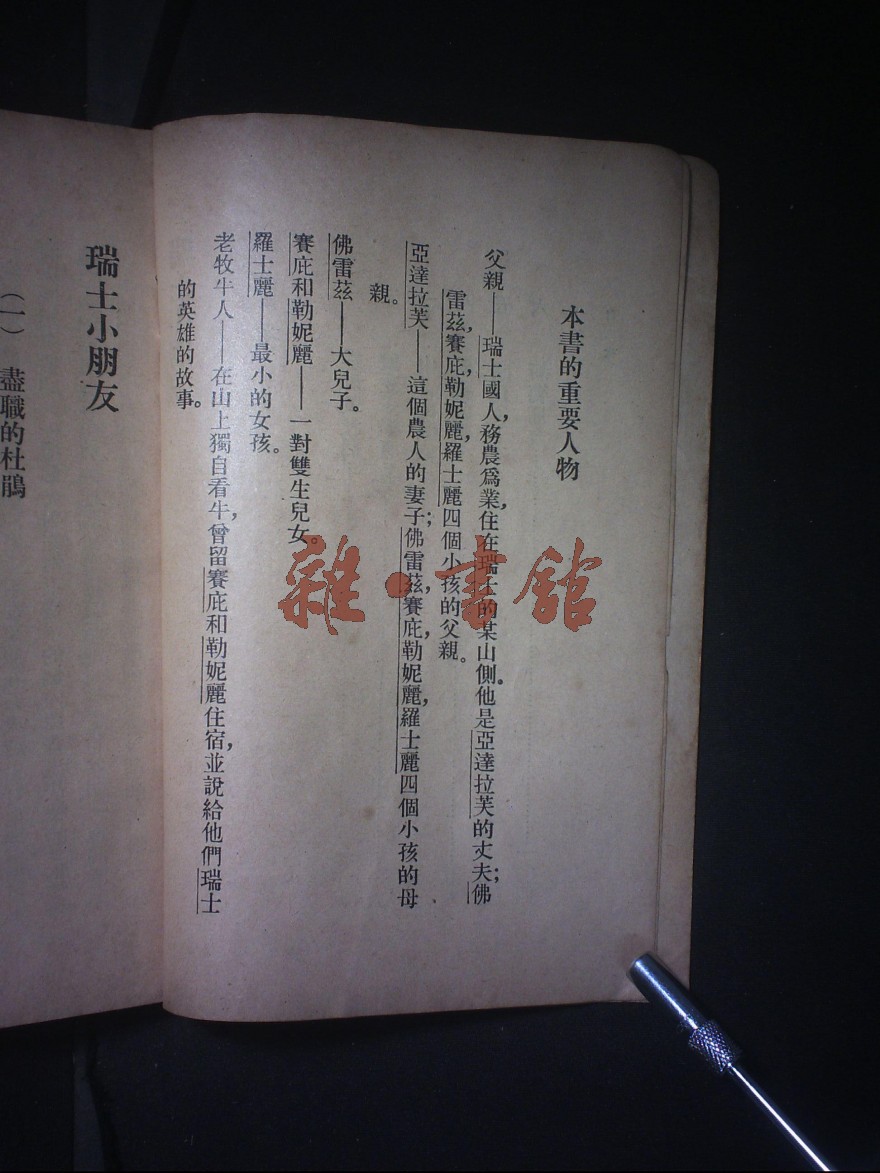 本書的重要人物
父親——瑞士國人，務農爲業，住在瑞士的某山側。他是亞達拉芙的丈夫；佛
雷茲，賽庇，勒妮麗，羅士麗四個小孩的父親。
亞達拉芙——這個農人的妻子；佛雷茲，賽庇，勒妮麗，羅士麗四個小孩的母
親。
佛雷茲——大兒子。
賽庇和勒妮麗——一對雙生兒女。
羅士麗——最小的女孩。
老牧牛人——在山上獨自看牛，曾留賽庇和勒妮麗住宿，並說給他們瑞士
的英雄的故事。
瑞士小朋友
（一）　盡職的杜鵑
雜·書館